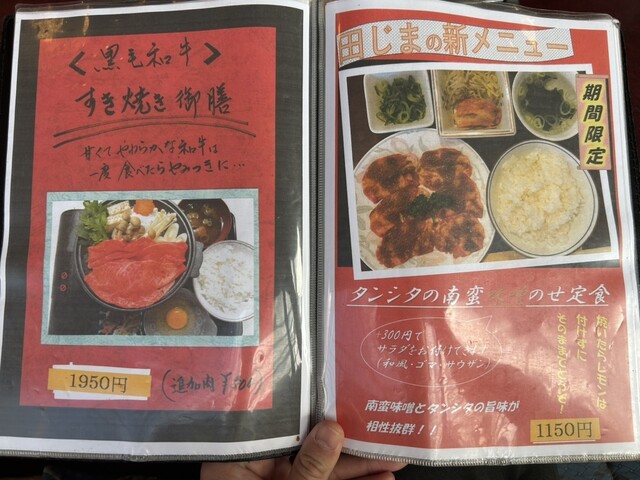 <黒毛和牛>
すき焼き御膳
甘くてやわらかな和牛は
一度食べたらやみつきに…
1950円
(追加肉¥500)
田じまの新メニュー
期間限定
タンシタの南蛮味噌のせ定食
+300円で
サラダをお付けでき
(和風・ゴマ・サウザン)
焼いたらレモンは
付けずに
そのままでどうぞ!
南蛮味噌とタンシタの旨味が
相性抜群!!
1150円